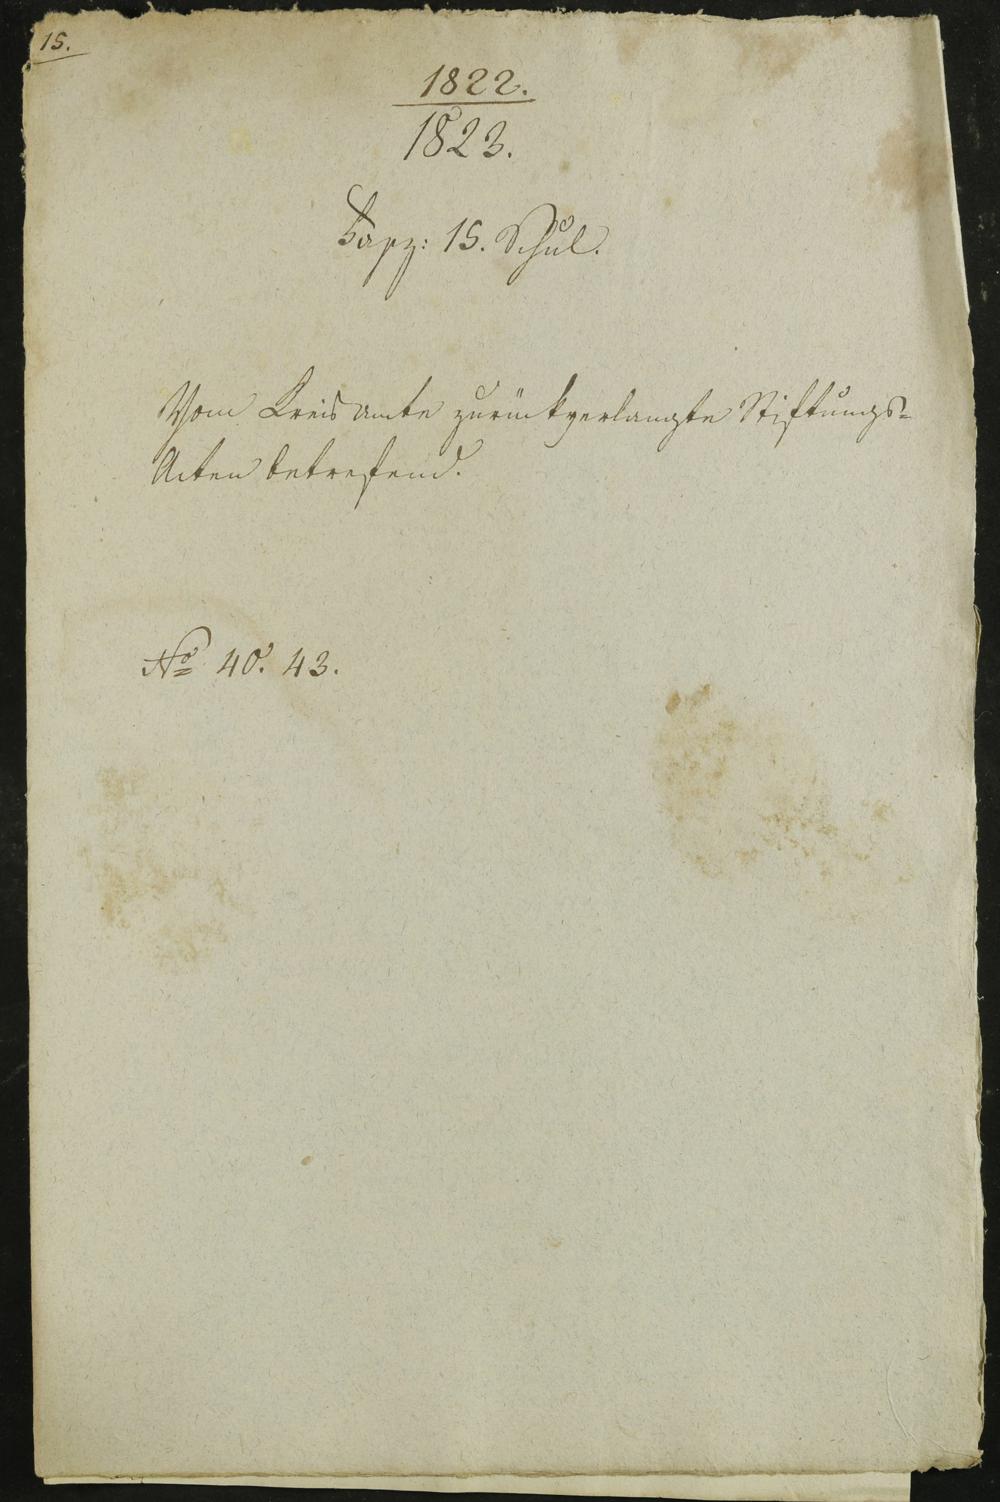 15.
1822.
1823.
Fasz: 15. Schul.
Vom Kreisamte zurückverlangte Stiftungs-
Acten betrefend.
No 40. 43.